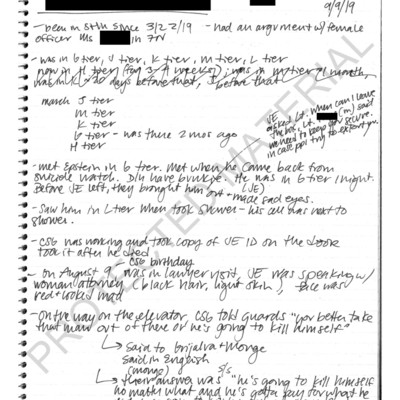 9/9/19
- been in SHU since 3/22/19 - had an argument w/ female
officer Ms in 7N
- was in G tier, J tier, K tier, M tier, L tier
now in H tier ( 3 weeks); was in M tier 1 month,
was in K 20 days before that, J before that
march J tier
M tier
K tier
G tier - was there 2 mos ago
H tier
JE
asked Lt. when can I leave
this Lt. (m) said
we need to keep you secure
in case ppl try to extort you.
- met Epstein in G tier. met when he came back from
suicide watch. D/n have bunkie. He was in G tier 1 night.
Before JE left, they brought him out (JE) - made sad eyes.
- Saw him in L tier when took shower - his cell was next to
shower.
- CS6 was working and took copy of JE ID on the door
took it after he died
CS6 birthday
- on August 9 - was in lawyer visit, JE was speaking w/
woman attorney (black hair, light skin), face was
red + looked mad
- on the way on the elevator, CS6 told guards "you better take
that man out of there or he's going to kill himself"
said to Grijalva + Monge
said in English
(Monge) s/s
their answer was "he's going to kill himself
no matter what and he's gotta pay for what he
PROTECTED MATERIAL